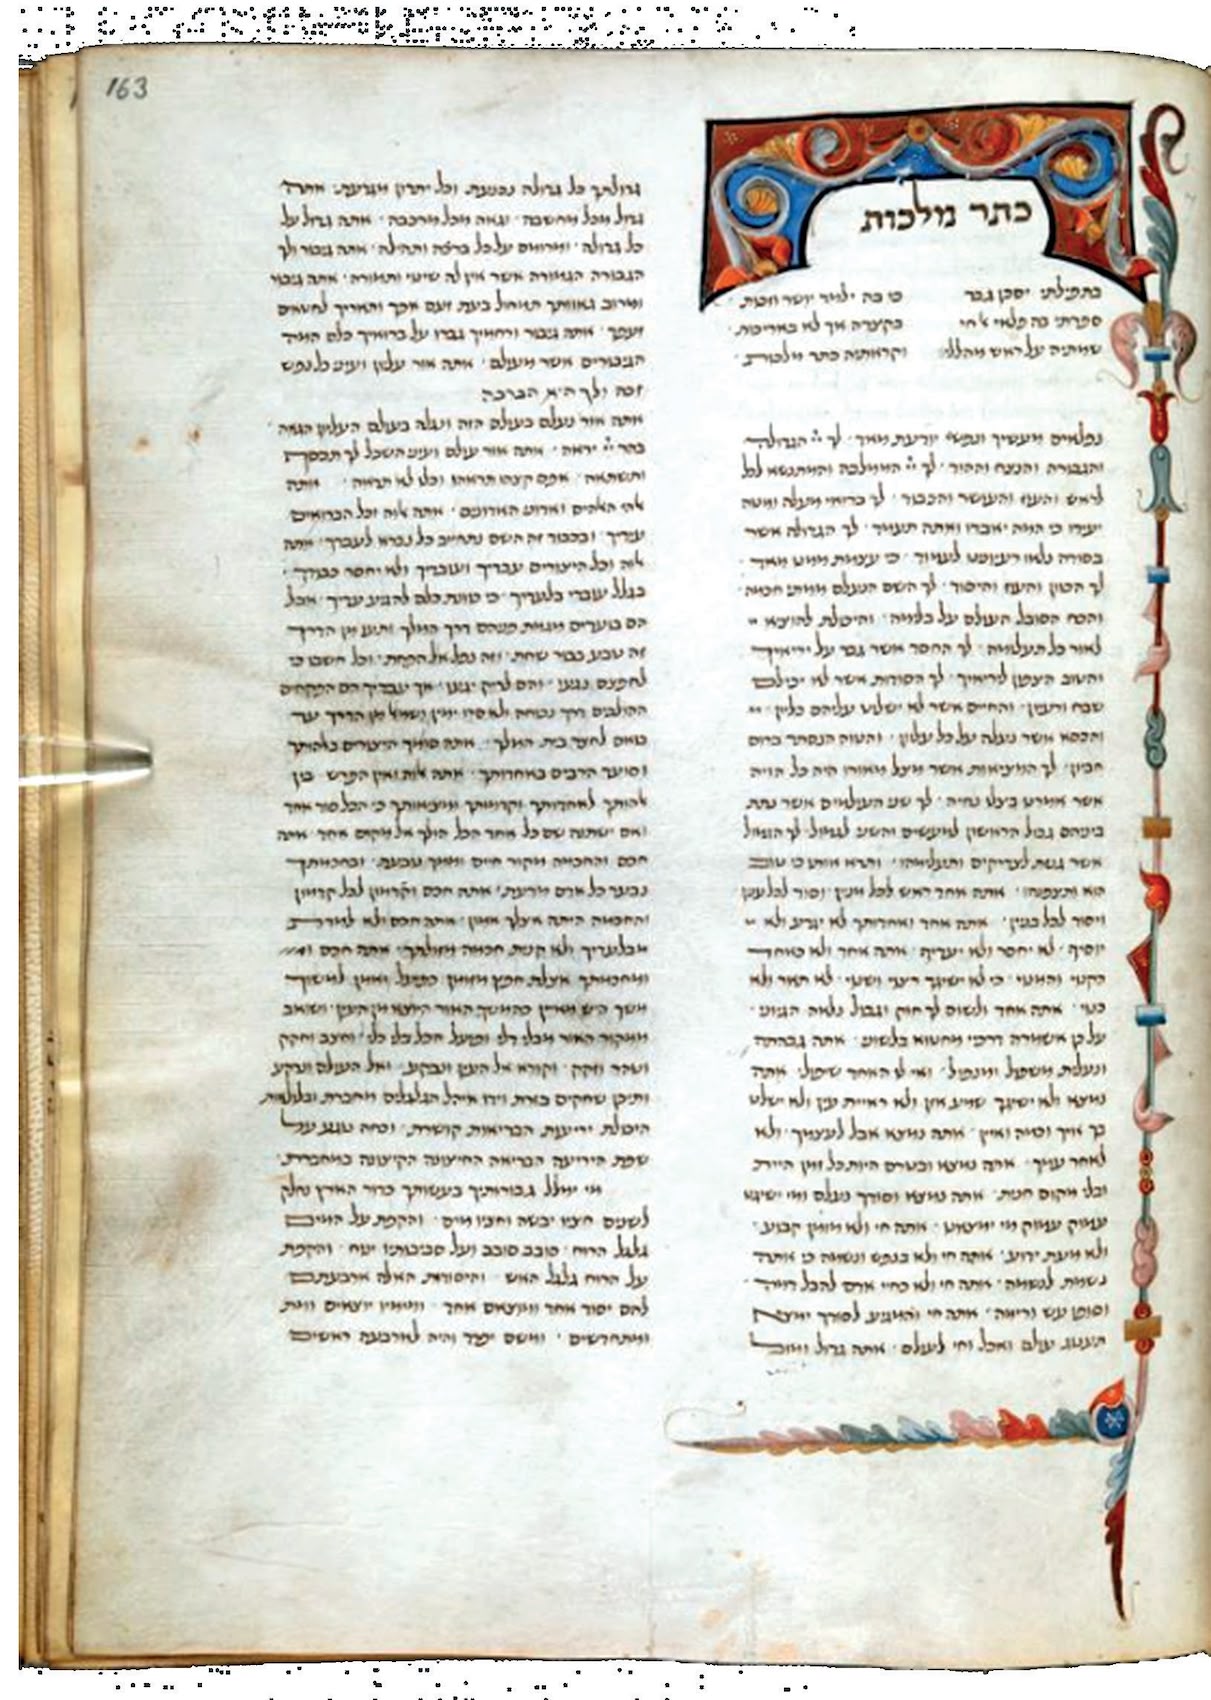 163
כתר מלכות
בתפילתי יסכן גבר כי בה ילמד יושר וזכות
ספרתי בה פלאי אל חי בקצרה אך לא באריכות
שמתיה על ראש מהללי וקראותיה כתר מלכות
נפלאים מעשיך ונפשי יודעת מאד לך יי הגדולה
והגבורה והנצח וההוד לך יי הממלכה והמתנשא לכל
לראש והעז והעושר והכבוד לך ברואי מעלה ומטה
יעידו כי המה יאבדו ואתה תעמוד לך הגדולה אשר
בסודה נלאו רעיוננו לעמוד כי עצמת ממנו מאד
לך חביון העוז והיסוד לך השם הנעלם ממתי חכמה
והכח הסובל העולם על בלימה והיכולת להוציא
לאור כל תעלומה לך החסד אשר גבר על יריאיך
והטוב הצפון ליריאיך לך הסודות אשר לא יכילם
שכל ורעיון והחיים אשר לא ישלוט עליהם כליון
והכסא אשר נעלה על כל עליון והנוה הנסתר ברום
חביון לך המציאות אשר מצל מאורו היה כל הויה
אשר אמרנו בצלו נחיה לך שני העולמים אשר נתת
ביניהם גבול הראשון למעשים והשני לגמול לך הגמול
אשר גנזת לצדיקים ותעלימהו ותרא אותו כי טוב
הוא ותצפנהו אתה אחד ראש לכל מנין ויסוד לכל ענין
ויסוד לכל בנין אתה אחד ואחדותך לא יגרע ולא
יוסיף לא יחסר ולא יעדיף אתה אחד ולא כאחד
הקנוי והמנוי כי לא ישיגך ריבוי ושינוי לא תאר ולא
כנוי אתה אחד ולשום לך חוק וגבול נלאה הגיוני
על כן אשמרה דרכי מחטוא בלשוני אתה גבהתה
ונעלית משפול ומנפול ואי לו האחד שיפול אתה
נמצא ולא ישיגך שמע אזן ולא ראיית עין ולא ישלוט
בך איך ולמה ואין אתה נמצא אבל לעצמך ולא
לאחר עמך אתה נמצא ובטרם היות כל זמן היית
ובלי מקום חנית אתה נמצא וסודך נעלם ומי ישיגנו
עמוק עמוק מי ימצאנו אתה חי ולא מזמן קבוע
ולא מעת ידוע אתה חי ולא בנפש ונשמה כי אתה
נשמה לנשמה אתה חי ולא כחיי אדם להבל דמה
וסופו עש ורימה אתה חי והמגיע לסודך ימצא
תענוג עולם ואכל וחי לעולם אתה גדול ומול
גדולתך כל גדולה נכנעת וכל יתרון מגרעת אתה
גדול מכל מחשבה וגאה מכל מרכבה אתה גדול על
כל גדולה ומרומם על כל ברכה ותהילה אתה גבור ולך
הגבורה הגמורה אשר אין לה שינוי ותמורה אתה גבור
ומרוב גאותך תמחול בעת זעם אפך ותאריך לחטאים
זעפך אתה גבור ורחמיך גברו על ברואיך כלם המה
הגבורים אשר מעולם אתה אור עליון ועיני כל נפש
זכה
אתה אור נעלם בעולם הזה ונגלה בעולם העליון הנאה
בהר יי יראה אתה אור עולם ועין השכל לך תכסוף
ותשתאה אפס קצהו תראהו וכלו לא תראה אתה
אלהי האלהים ואדוני האדונים אתה אלוה וכל הברואים
עדיך ובכבוד זה השם נתחייב כל נברא לעבדך אתה
אלוה וכל היצורים עבדיך ועובדיך ולא יחסר כבודך
בגלל עובדי בלעדיך כי כונת כלם להגיע עדיך אבל
הם כעורים מגמת פניהם דרך המלך ותעו מן הדרך
זה טבע בבור שחת וזה נפל אל הפחת וכל חשבו כי
לחפצם נגעו והם לריק יגעו אך עבדיך הם הפקחים
ההולכים דרך נכוחה ולא סרו ימין ושמאל מן הדרך עד
בואם לחצר בית המלך אתה סומך היצורים באלהותך
וסועד הברואים באחדותך אתה אלוה ואין הפרש בין
אלהותך לאחדותך וקדמותך ומציאותך כי הכל סוד אחד
ואם ישתנה שם כל אחד הכל הולך אל מקום אחד אתה
חכם והחכמה מקור חיים וממך נובעת ובחכמתך
נבער כל אדם מדעת אתה חכם וקדמון לכל קדמון
והחכמה היתה אצלך אמון אתה חכם ולא למדת
מבלעדיך ולא קנית חכמה מזולתך אתה חכם
ומחכמתך אצלת חפץ מזומן כפועל ואמן למשוך
משך היש מאין כהמשך האור היוצא מן העין ושואב
ממקור האור מבלי דלי ופועל הכל בלי כלי וחצב וחקק
וטהר וזקק וקורא אל האין ונבקע ואל העולם ונרקע
ותיכן שחקים בזרת וידו אוהל הגלגלים מחברת ובללאות
היכולת יריעות הבריאות קושרת וכחה נוגע על
שפת היריעה הבריאה החיצונה הקיצונה במחברת
מי ימלל גבורותיך בעשותך כדור הארץ נחלק
לשנים חציו יבשה וחציו מים והקפת על המים
גלגל הרוח סובב סובב ועל סביבותיו ינוח והקפת
על הרוח גלגל האש והיסודות האלה ארבעתם
להם יסוד אחד ומוצאם אחד וממנו יוצאים
ומתחדשים ומשם יפרד והיה לארבעה ראשים